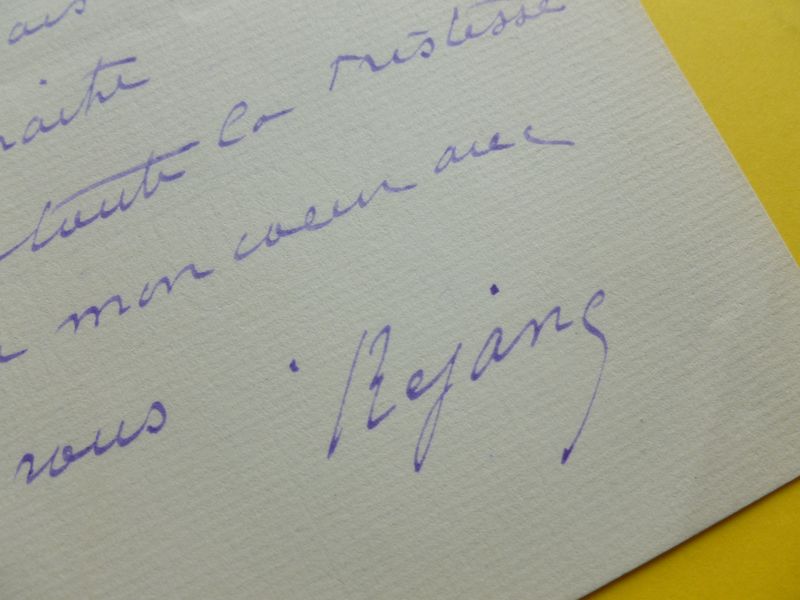 ais
raitre
toute la tristesse
mon coeur avec
vous Rejane